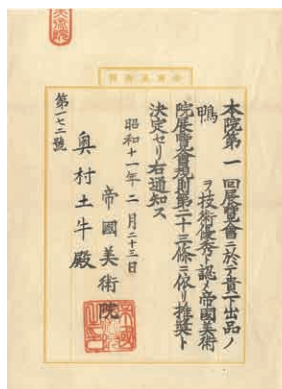 本院第一回展覽會ニ於テ貴下出品ノ
鴨　ヲ技術優秀ト認メ帝國美術
院展覽會規則第二十三條ニ依リ推奬ト
決定セリ右通知ス
昭和十一年二月二十三日
帝國美術院
奥村土牛殿
第一七二號